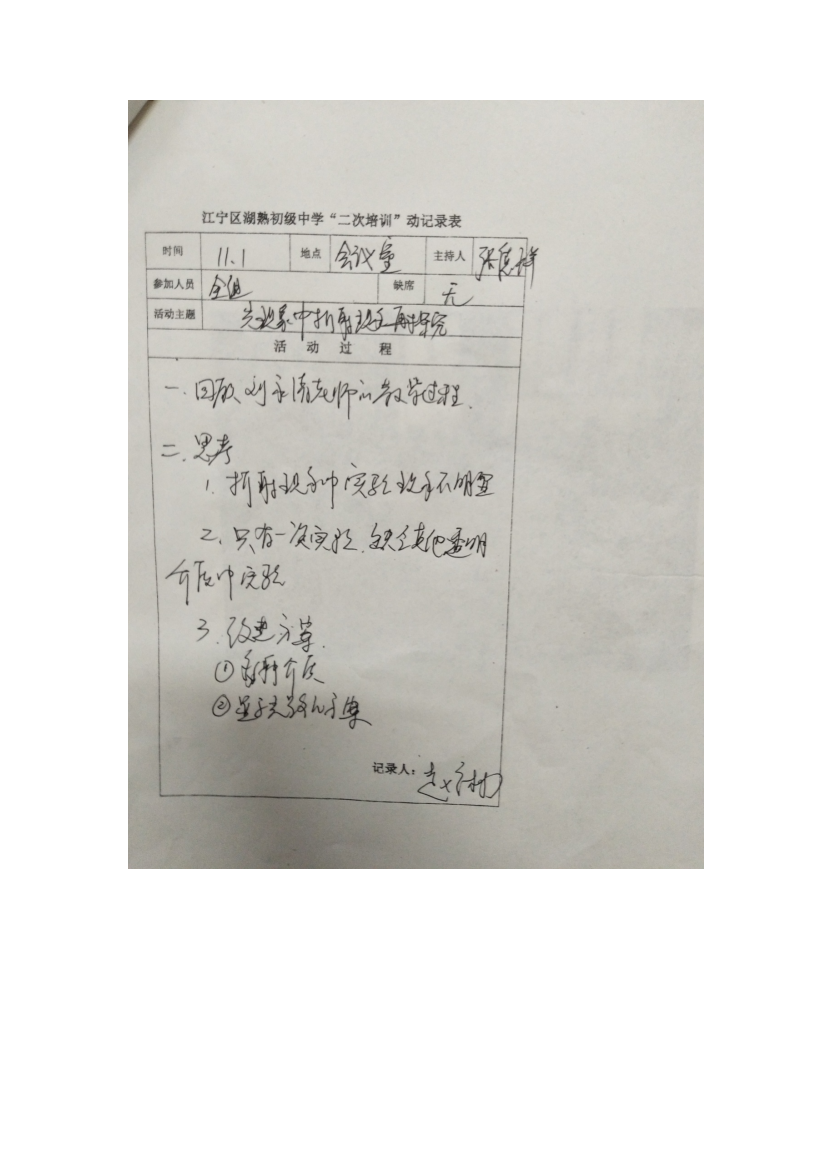 江宁区湖熟初级中学“二次培训”动记录表
时间 11.1 地点 会议室 主持人 张
参加人员 全组 缺席 无
活动主题 光现象中折射现象再探究
活动过程
一、回顾刘永清老师的教学过程.
二、思考
1、折射现象中实验现象不明显
2、只有一次实验、缺乏其他透明
介质中实验
3、改进方案.
① 介质
② 方案
记录人：赵